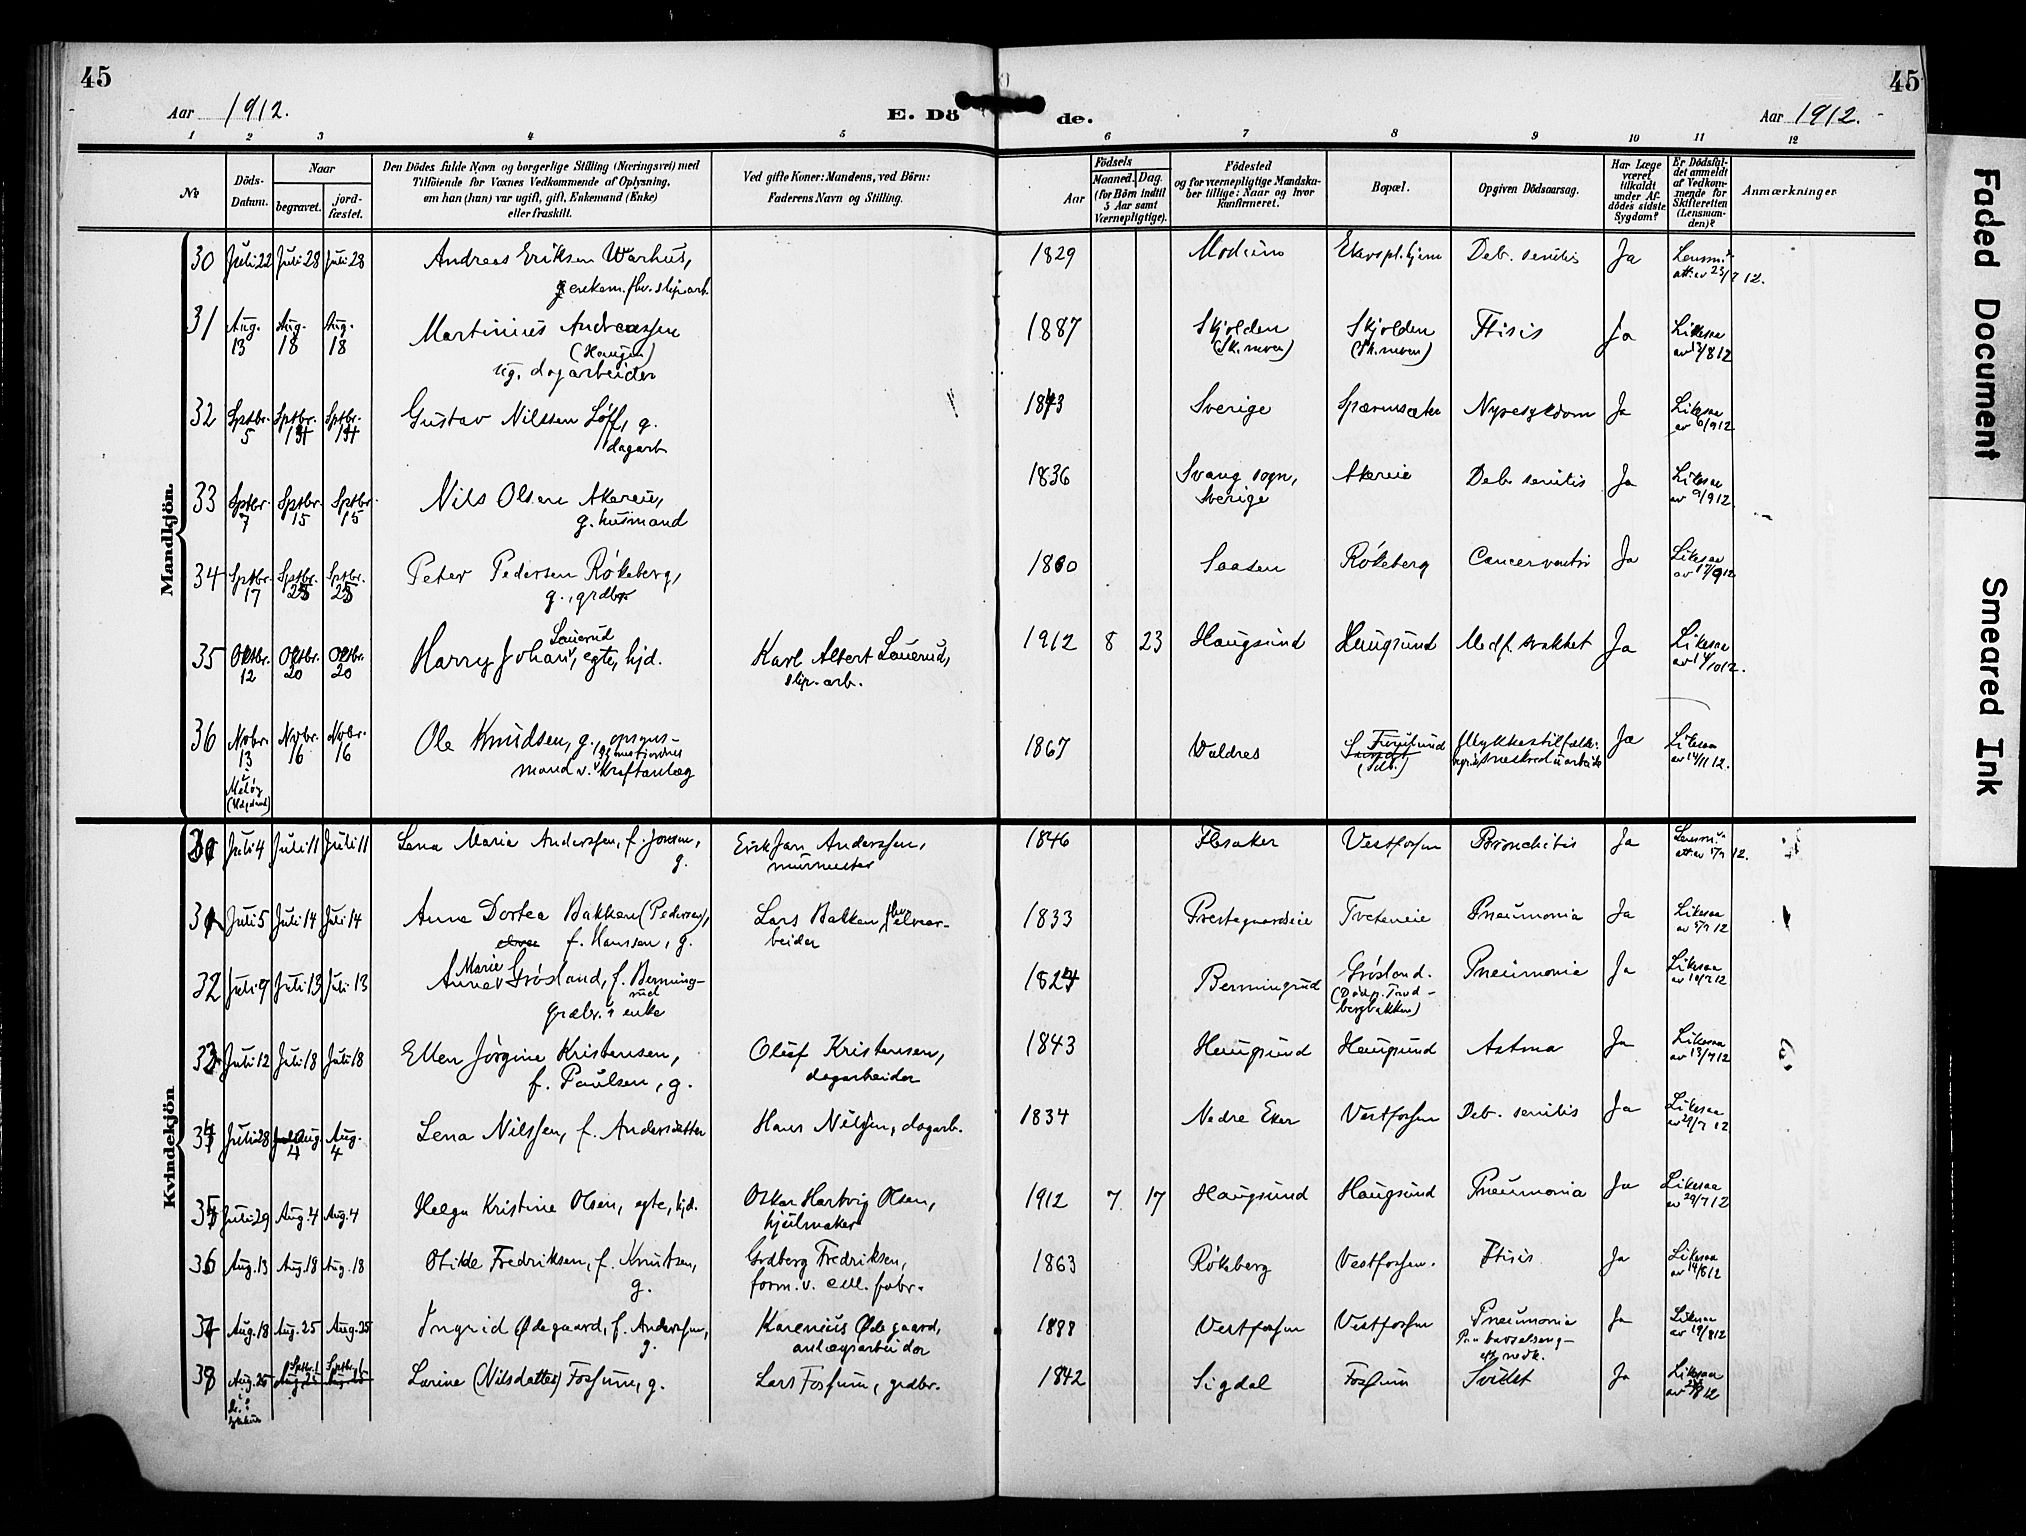 45
45
Aar 1912.
E. Dö
de.
Aar 1912.
1 2 3 4 5 6 7 8 9 10 11 12
No
Döds-
Datum.
Naar
begravet.
jord-
fæstet.
Den Dödes fulde Navn og borgerlige Stilling (Næringsvei) med
Tilföiende for Voxnes Vedkommende af Oplysning,
om han (hun) var ugift, gift, Enkemand (Enke)
eller fraskilt.
Ved gifte Koner: Mandens, ved Börn:
Faderens Navn og Stilling.
Aar
Födsels
Maaned. Dag.
(for Börn indtil
5 Aar samt
Værnepligtige).
Födested
og for værnepligtige Mandska-
ber tillige: Naar og hvor
konfirmeret.
Bopæl.
Opgiven Dödsaarsag.
Har Læge
været
tilkaldt
under Af-
dödes sidste
Sygdom?
Er Dödsfal-
det anmeldt
af Vedkom-
mende for
Skifteretten
(Lensman-
den)?
Anmærkninger
Mandkjön.
30 Juli 22 Juli 28 Juli 28 Andreas Eriksen Warhus, 1829 Modum Ekerspl.hjem Deb. senilis Ja Lensm.s
enkem. fhv. slip.arb. att. av 23/7 12.
31 Aug. 13 Aug. 18 Aug. 18 Martinius Andreassen 1887 Skjolden Skjolden Ftisis Ja Likesaa
(Haugen) av 13/8 12
ug. dagarbeider
32 Sptbr. 5 Sptbr. Sptbr. Gustav Nilssen Löff, g. 1843 Sverige Nyresykdom Ja Likesaa
dagarb av 6/9 12
33 Sptbr. 7 Sptbr. 15 Sptbr. 15 Nils Olsen Akereie, 1836 Svang sogn, Akereie Deb. senilis Ja Likesaa
g. husmand Sverige av 9/9 12
34 Sptbr. 17 Sptbr. 25 Sptbr. 25 Peter Pedersen Rökeberg, Saasen Rökeberg Cancer ventri Ja Likesaa
g., grdbr av 17/9 12
35 Oktbr. 12 Oktbr. 20 Oktbr. 20 Harry Johan Lauerud, egte, hjd. Karl Albert Lauerud, 1912 8 23 Haugsund Haugsund Medf. svakhet Ja Likesaa
slip. arb. av 14/10 12.
36 Novbr. 13 Novbr. 16 Novbr. 16 Ole Knudsen, g. opsyns- 1867 Valdres Ulykkestilfælde Ja Likesaa
mand v. kraftanlæg av 14/11 12.
Kvindekjön
30 Juli 4 Juli 11 Juli 11 Lena Marie Anderssen, f. Jonsen, g. Erik Jan Anderssen, 1846 Flesaker Vestfossen Bronchitis Ja Lensm.s
murmester
31 Juli 5 Juli 14 Juli 14 Anne Dortea Bakken (Pedersen), Lars Bakken, fhv. elvear- 1833 Prestegaardseie Tveteneie Pneumonia Ja Likesaa
f. Hanssen, g. beider av 5/7 12
32 Juli 9 Juli 13 Juli 13 Anne Marie Grösland, f. Berming- 1824 Bermingrud Grösland. Pneumonia Ja Likesaa
rud
grdbr. enke av 10/7 12
33 Juli 12 Juli 18 Juli 18 Ellen Jörgine Kristensen, Oluf Kristensen, 1843 Haugsund Haugsund Astma Ja Likesaa
f. Paulsen, g. dagarbeider av 13/7 12
34 Juli 28 Aug. 4 Aug. 4 Lena Nilssen, f. Andersdatter Hans Nilssen, dagarb. 1834 Nedre Eker Vestfossen Deb. senilis Ja Likesaa
av 29/7 12
35 Juli 29 Aug. 4 Aug. 4 Helga Kristine Olsen, egte, hjd. Oskar Hartvig Olsen, 1912 7 17 Haugsund Haugsund Pneumonia Ja Likesaa
hjulmaker av 29/7 12
36 Aug. 13 Aug. 18 Aug. 18 Otilde Fredriksen, f. Knutsen, Gudberg Fredriksen, 1863 Rökeberg Vestfossen. Ftisis Ja Likesaa
g. form. v. cell. fabr. av 14/8 12
37 Aug. 18 Aug. 25 Aug. 25 Ingrid Ödegaard, f. Anderssen, Karenius Ödegaard, 1888 Vestfossen Vestfossen Pneumonia Ja Likesaa
g. anlægsarbeider av 19/8 12
38 Aug. 25 Sptbr. 1 Sptbr. 1 Larine (Nilsdatter) Fossum, g. Lars Fossum, grdbr. 1842 Sigdal Fossum Ja Likesaa
Faded Document
Smeared Ink